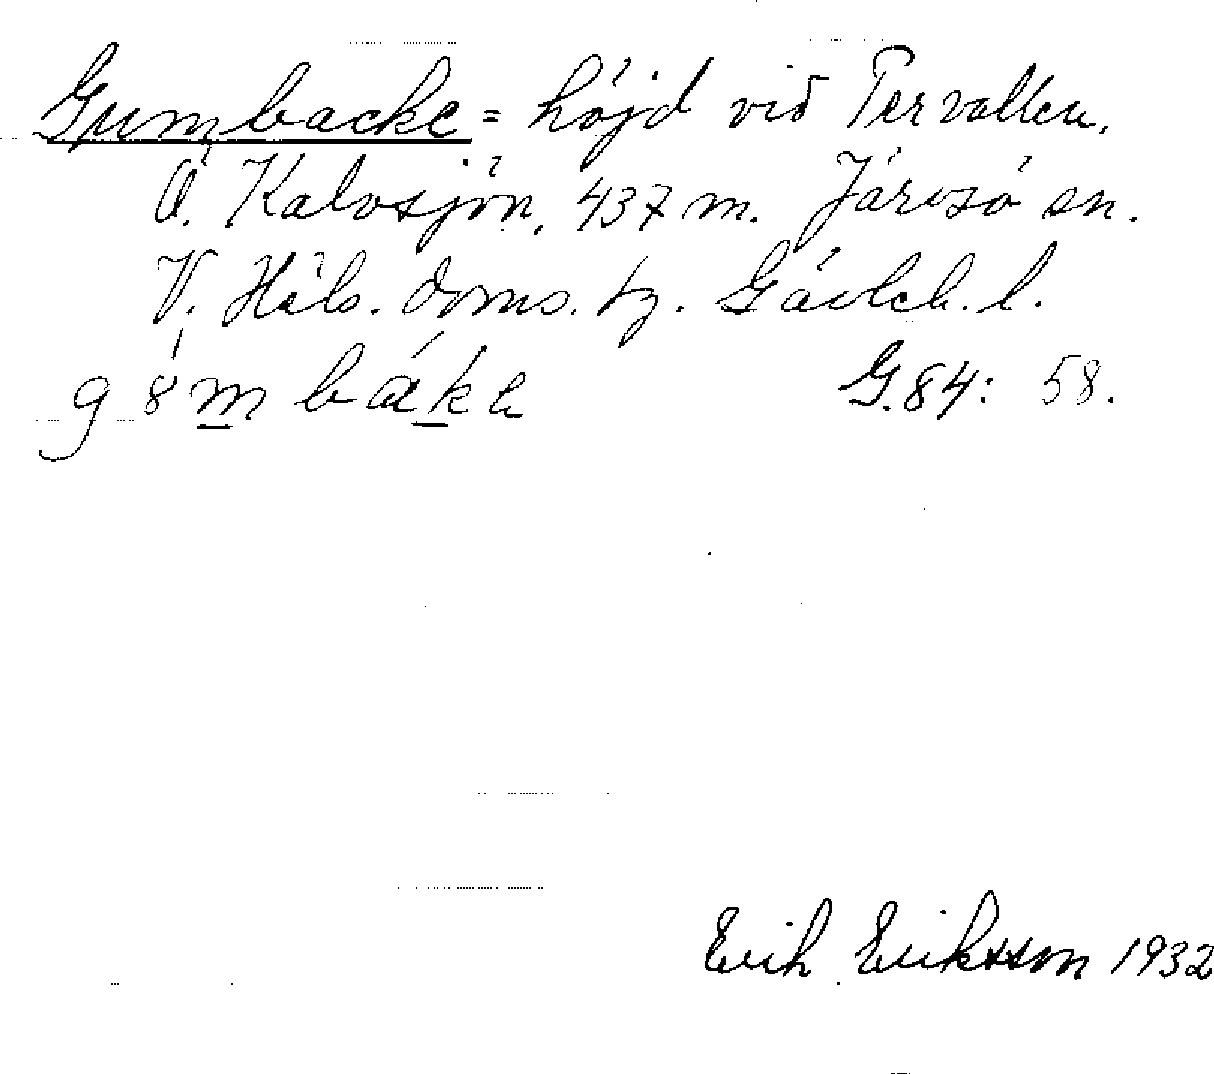 Gumbacke = höjd vid Pervallen,
Ö. Kalvsjön, 437 m. Järvsö sn.
V. Häls. doms. tg. Gävleb. l.
g8mbake G.84: 58.
Erik Eriksson 1932